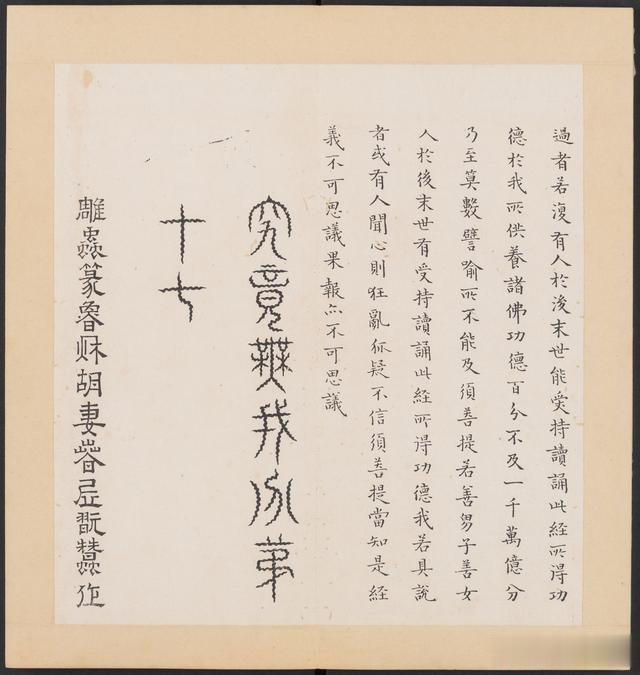 過者若復有人於後末世能受持讀誦此經所得功
德於我所供養諸佛功德百分不及一千萬億分
乃至算數譬喻所不能及須菩提若善男子善女
人於後末世有受持讀誦此經所得功德我若具說
者或有人聞心則狂亂狐疑不信須菩提當知是經
義不可思議果報亦不可思議
究竟無我分第
十七
雕蟲篆魯秋胡妻春居翫蠶作